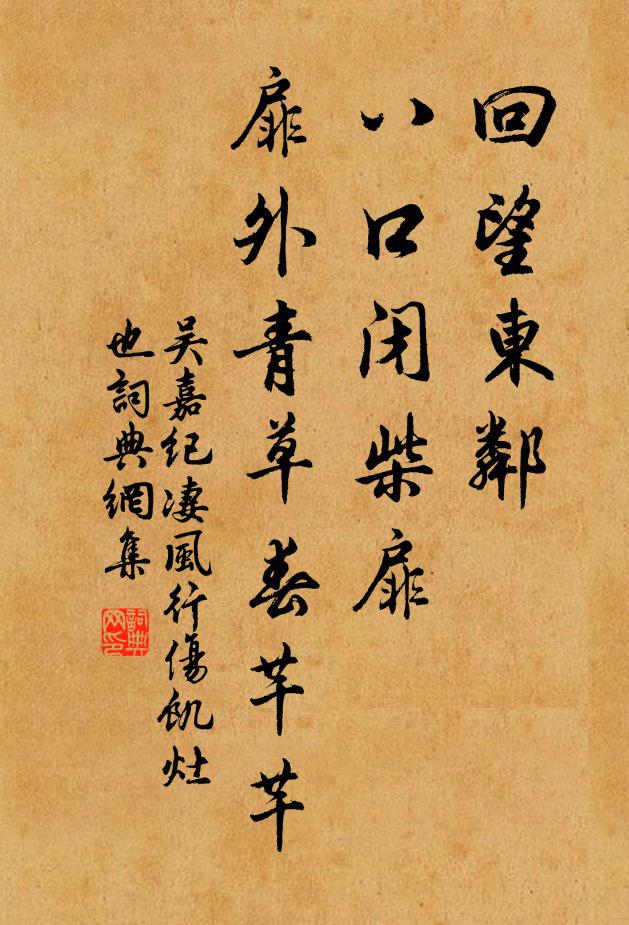 回望東鄰
八口閉柴扉
扉外青草春芊芊
吴嘉纪凄風行傷飢灶
也詞典網集
詞典网印